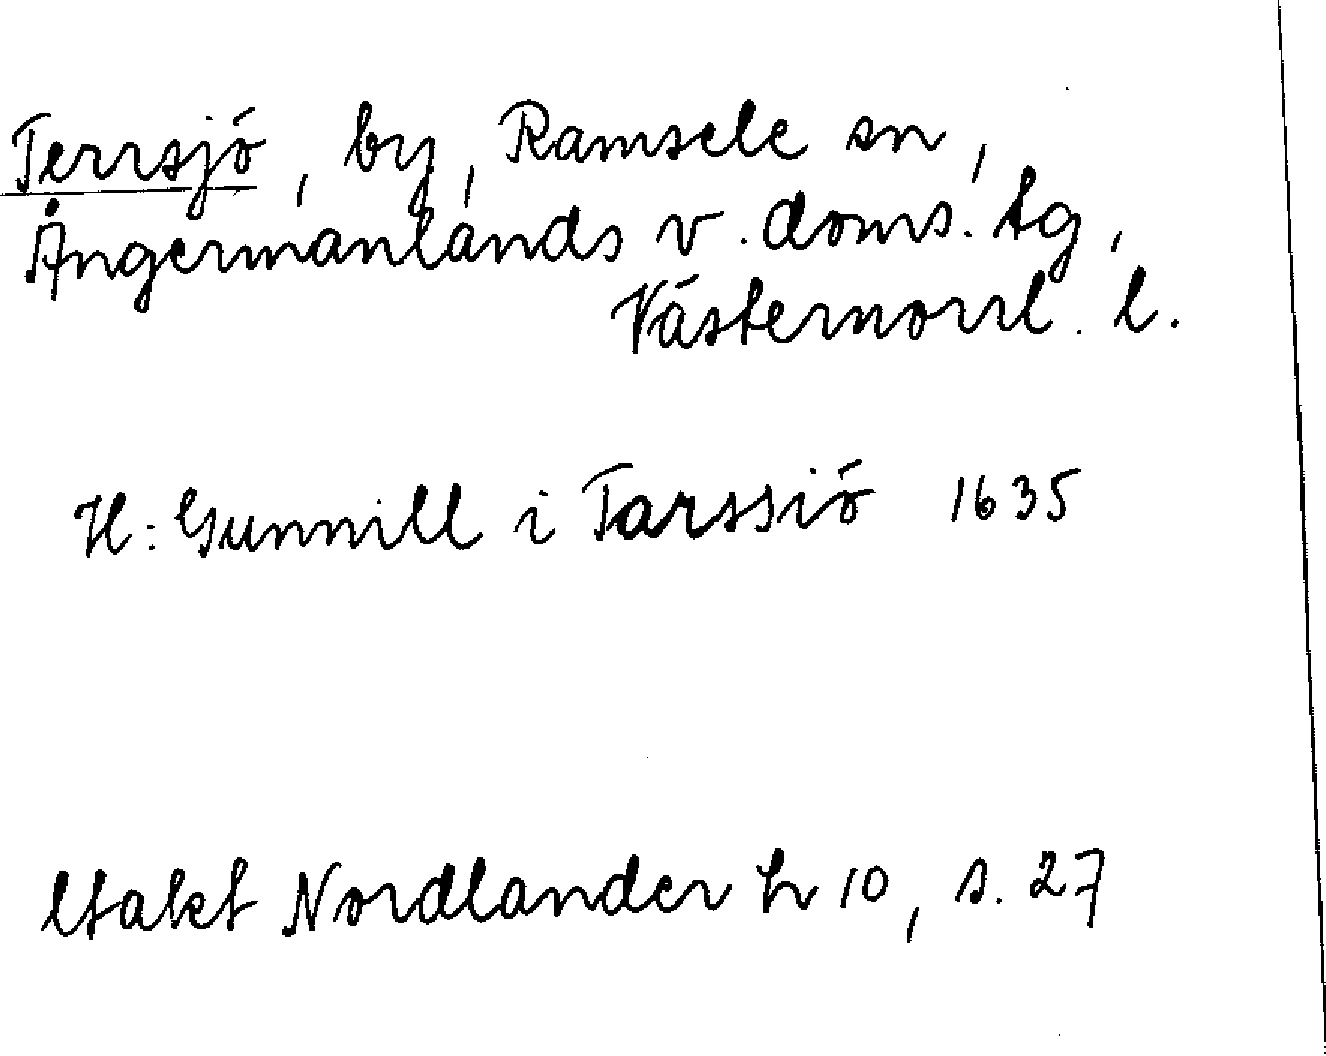 Terrsjö, by, Ramsele sn,
Ångermanlands v. doms. tg,
Västernorrl. l.
H: Gunnill i Tarssiö 1635
Utakt Nordlander h 10, s. 27